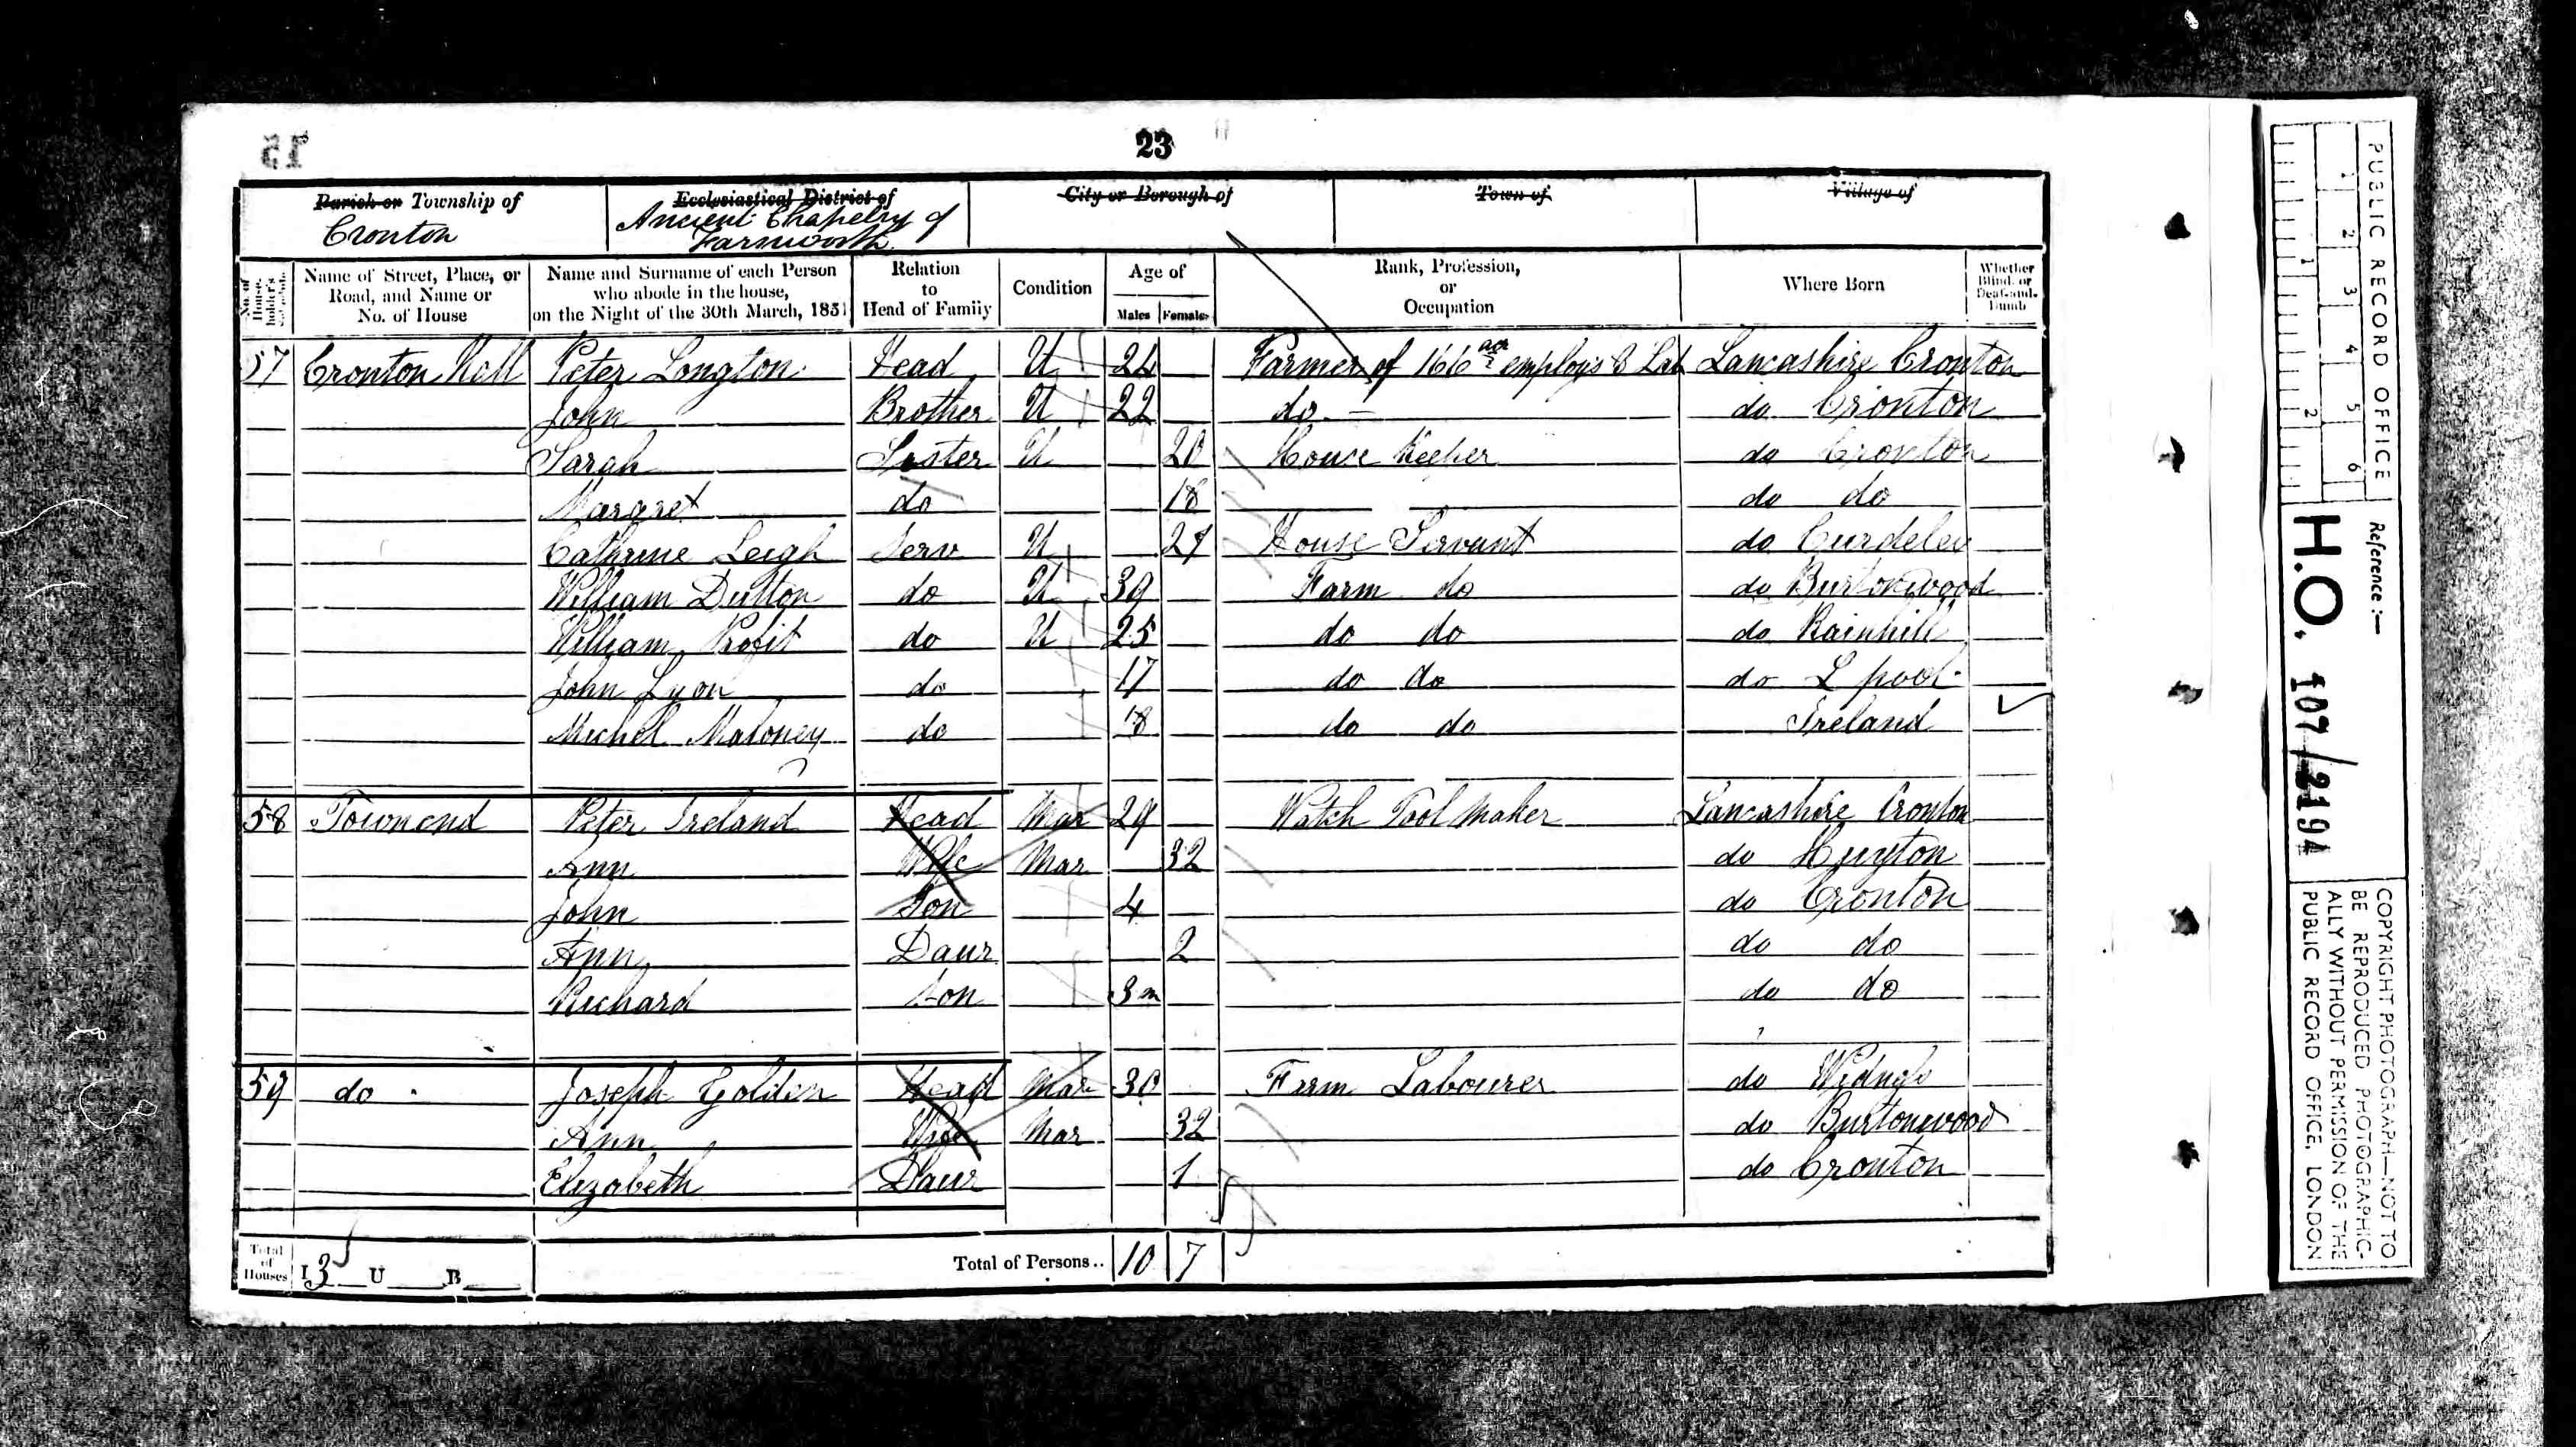 23
Parish or Township of
Cronton
Ecclesiastical District of
Ancient Chapelry of
Farnworth
City or Borough of
Town of
Village of
No. of House-holder's Schedule
Name of Street, Place, or Road, and Name or No. of House
Name and Surname of each Person who abode in the house, on the Night of the 30th March, 1851
Relation to Head of Family
Condition
Age of
Males
Females
Rank, Profession, or Occupation
Where Born
Whether Blind, or Deaf-and-Dumb
57 Cronton Hall Peter Longton Head U 24 Farmer of 166 acr employs 6 Lab Lancashire Cronton
John Brother U 22 do do Cronton
Sarah Sister U 20 House Keeper do Cronton
Margret do 18 do do
Cathrine Leigh Serv U 27 House Servant do Curdeley
William Dutton do U 39 Farm do do Burtonwood
William Profit do U 25 do do do Rainhill
John Lyon do 17 do do do L pool
Michel Maloney do 18 do do Ireland
58 Townend Peter Ireland Head Mar 29 Watch Tool Maker Lancashire Cronton
Ann Wife Mar 32 do Huyton
John Son 4 do Cronton
Ann Daur 2 do do
Richard Son 3m do do
59 do Joseph Golden Head Mar 30 Farm Labourer do
Ann Wife Mar 32 do Burtonwood
Elizabeth Daur 1 do Cronton
Total of Houses I 3 U B Total of Persons.. 10 7
PUBLIC RECORD OFFICE
1 2 3 4 5 6
1 2
Reference :—
H.O. 107/2194
COPYRIGHT PHOTOGRAPH—NOT TO
BE REPRODUCED PHOTOGRAPHIC-
ALLY WITHOUT PERMISSION OF THE
PUBLIC RECORD OFFICE, LONDON